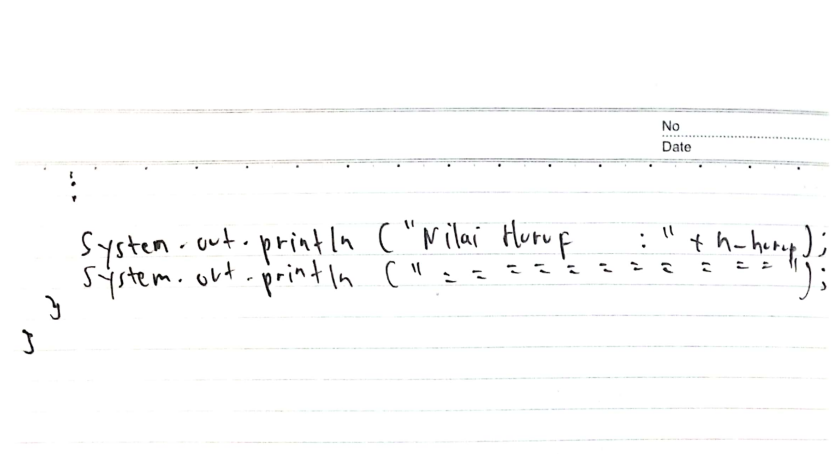 No
Date
:
System.out.println ("Nilai Huruf : " + n_huruf);
System.out.println (" = = = = = = = = = = = =");
}
}